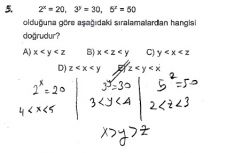 5. 2ˣ = 20, 3ʸ = 30, 5ᶻ = 50
olduğuna göre aşağıdaki sıralamalardan hangisi
doğrudur?
A) x < y < z B) x < z < y C) y < x < z
D) z < x < y E) z < y < x
2ˣ=20 3ʸ=30 5ᶻ=50
4<x<5 3<y<4 2<z<3
x>y>z